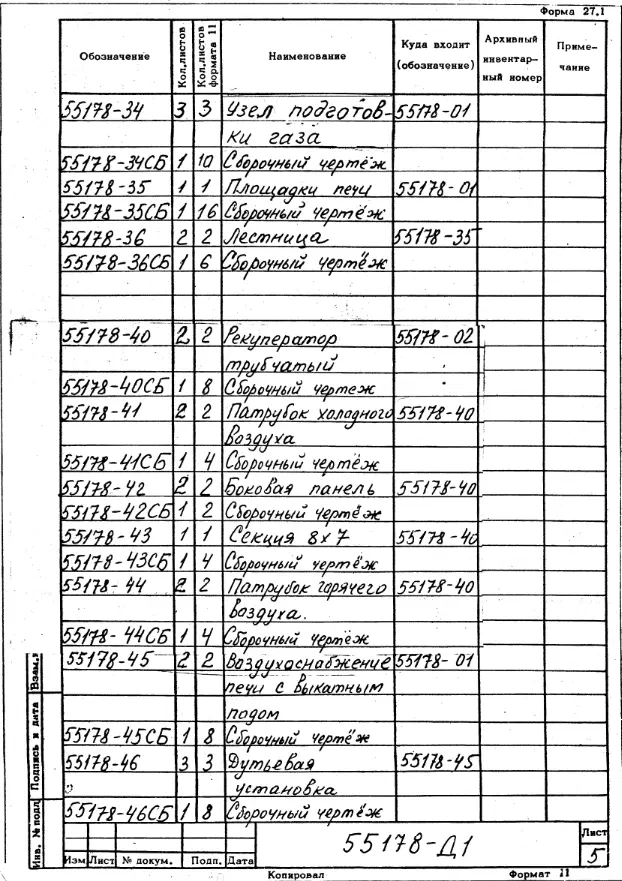 Форма 27.1
Обозначение Кол.листов Кол.листов формата 11 Наименование Куда входит (обозначение) Архивный инвентар-ный номер Приме-чание
55178-34 3 3 Узел подготов- 55178-01
ки газа
55178-34СБ 1 10 Сборочный чертёж
55178-35 1 1 Площадки печи 55178-01
55178-35СБ 1 16 Сборочный чертёж
55178-36 2 2 Лестница 55178-35
55178-36СБ 1 6 Сборочный чертёж
55178-40 2 2 Рекуператор 55178-02
трубчатый
55178-40СБ 1 8 Сборочный чертеж
55178-41 2 2 Патрубок холодного 55178-40
воздуха
55178-41СБ 1 4 Сборочный чертёж
55178-42 2 2 Боковая панель 55178-40
55178-42СБ 1 2 Сборочный чертёж
55178-43 1 1 Секция 8х7 55178-40
55178-43СБ 1 4 Сборочный чертёж
55178-44 2 2 Патрубок горячего 55178-40
воздуха.
55178-44СБ 1 4 Сборочный чертёж
55178-45 2 2 Воздухоснабжение 55178-01
печи с выкатным
подом
55178-45СБ 1 8 Сборочный чертёж
55178-46 3 3 Дутьевая 55178-45
установка
55178-46СБ 1 8 Сборочный чертёж
Взам.
Подпись и дата
Инв. № подл
Изм Лист № докум. Подп. Дата
55178-Д1
Лист
5
Копировал Формат 11